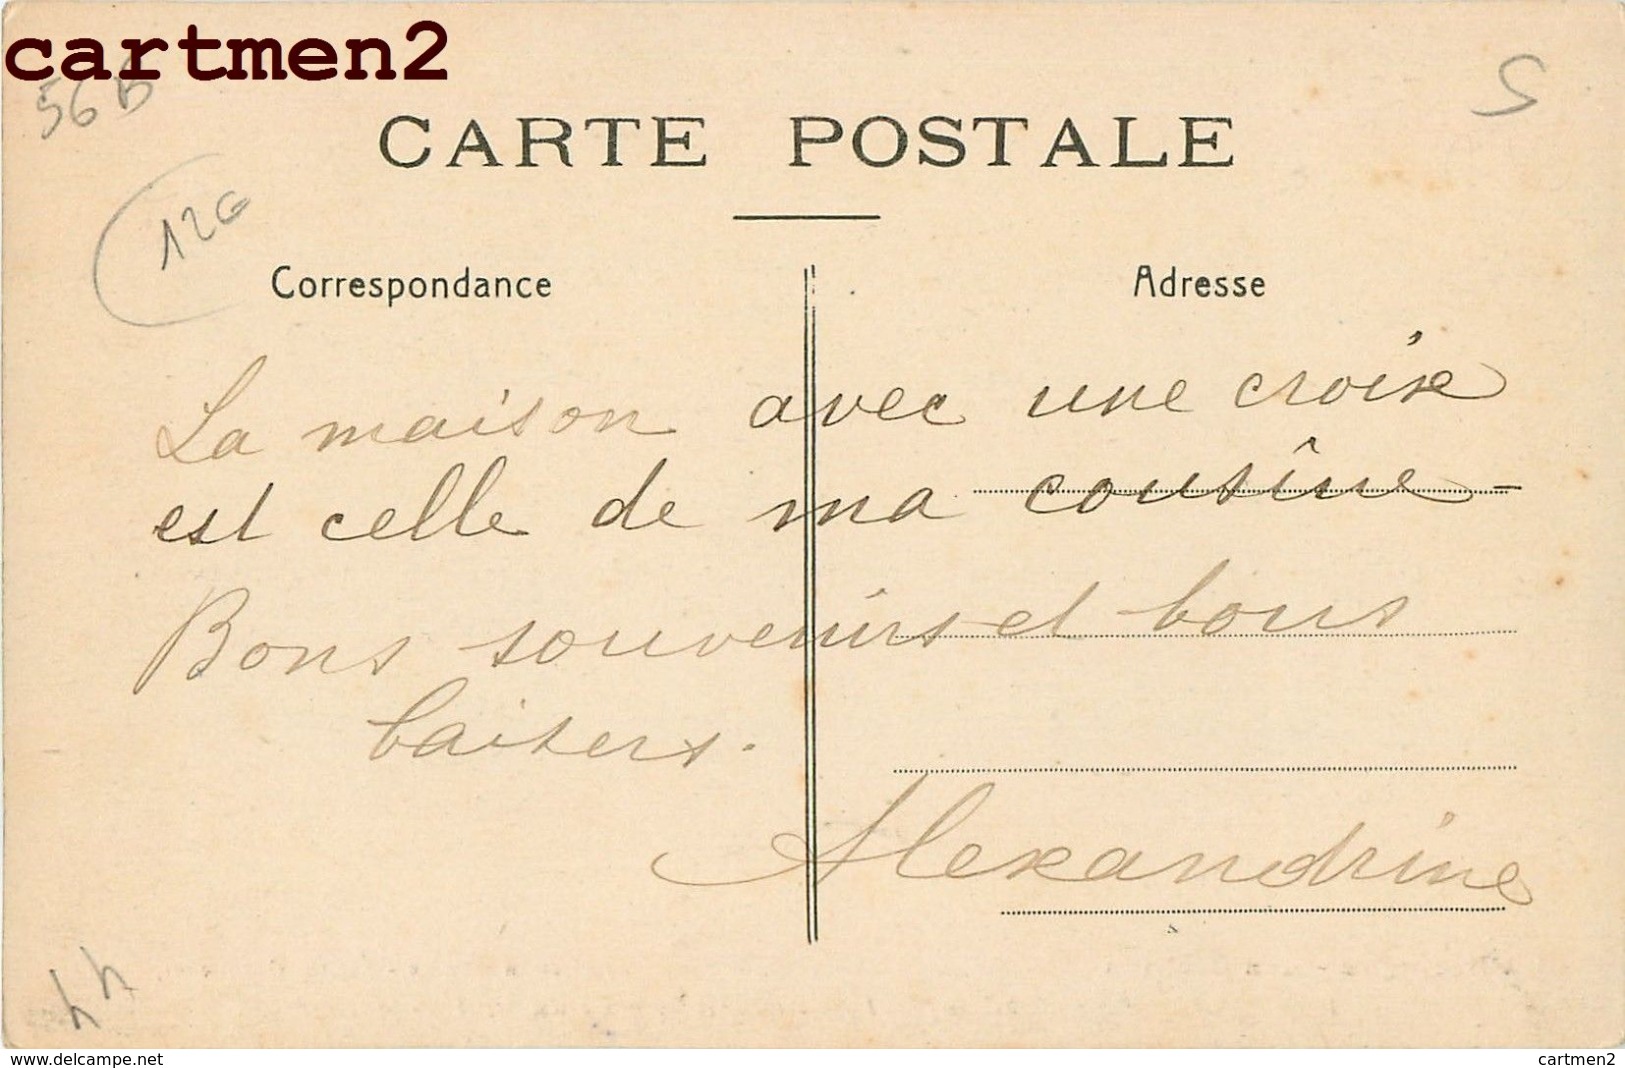 cartmen2
56 B
S
CARTE POSTALE
12G
Correspondance
Adresse
La maison avec une croix
est celle de ma cousine -
Bons souvenirs et bons
baisers.
Alexandrine
44
www.delcampe.net
cartmen2